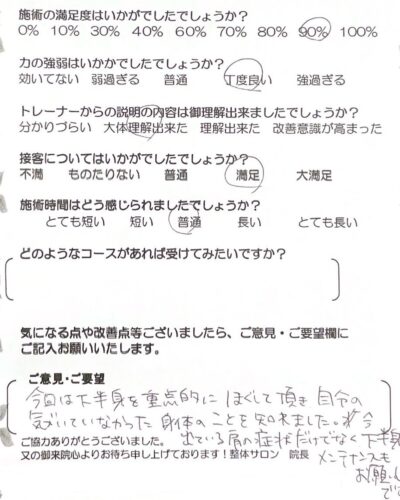 施術の満足度はいかがでしたでしょうか?
0% 10% 30% 40% 60% 70% 80% 90% 100%
力の強弱はいかがでしたでしょうか?
効いてない 弱過ぎる 普通 丁度良い 強過ぎる
トレーナーからの説明の内容は御理解出来ましたでしょうか?
分かりづらい 大体理解出来た 理解出来た 改善意識が高まった
接客についてはいかがでしたでしょうか?
不満 ものたりない 普通 満足 大満足
施術時間はどう感じられましたでしょうか?
とても短い 短い 普通 長い とても長い
どのようなコースがあれば受けてみたいですか?
気になる点や改善点等ございましたら、ご意見・ご要望欄に
ご記入お願いいたします。
ご意見・ご要望
今回は下半身を重点的に ほぐして頂き 自分の
気づいていなかった 身体のことを知れました。今
出ている肩の症状だけでなく 下半身
メンテナンスも
お願い
ご協力ありがとうございました。
又の御来院心よりお待ち申し上げております!整体サロン 院長